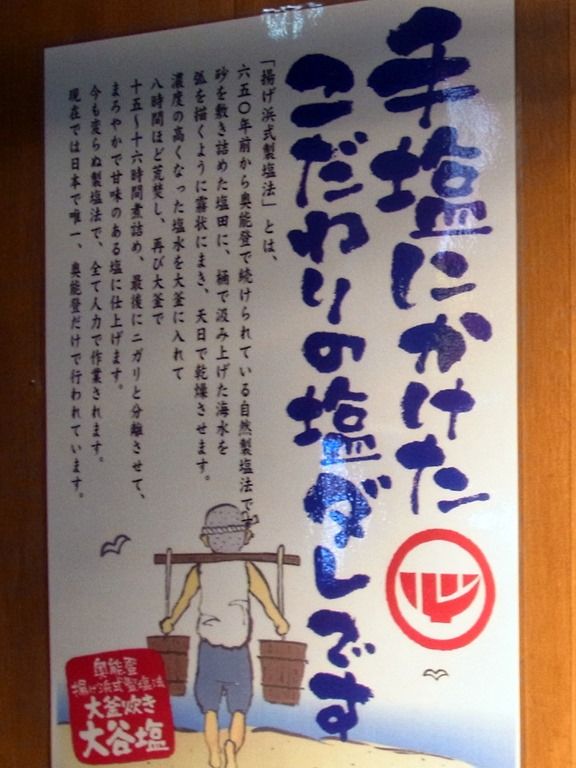 手塩にかけた
こだわりの塩ダレです
「揚げ浜式製塩法」とは、
六五〇年前から奥能登で続けられている自然製塩法です
砂を敷き詰めた塩田に、桶で汲み上げた海水を
弧を描くように霧状にまき、天日で乾燥させます。
濃度の高くなった塩水を大釜に入れて
八時間ほど荒焚し、再び大釜で
十五〜十六時間煮詰め、最後にニガリと分離させて、
まろやかで甘味のある塩に仕上げます。
今も変らぬ製塩法で、全て人力で作業されます。
現在では日本で唯一、奥能登だけで行われています。
奥能登
揚げ浜式製塩法
大釜炊き
大谷塩